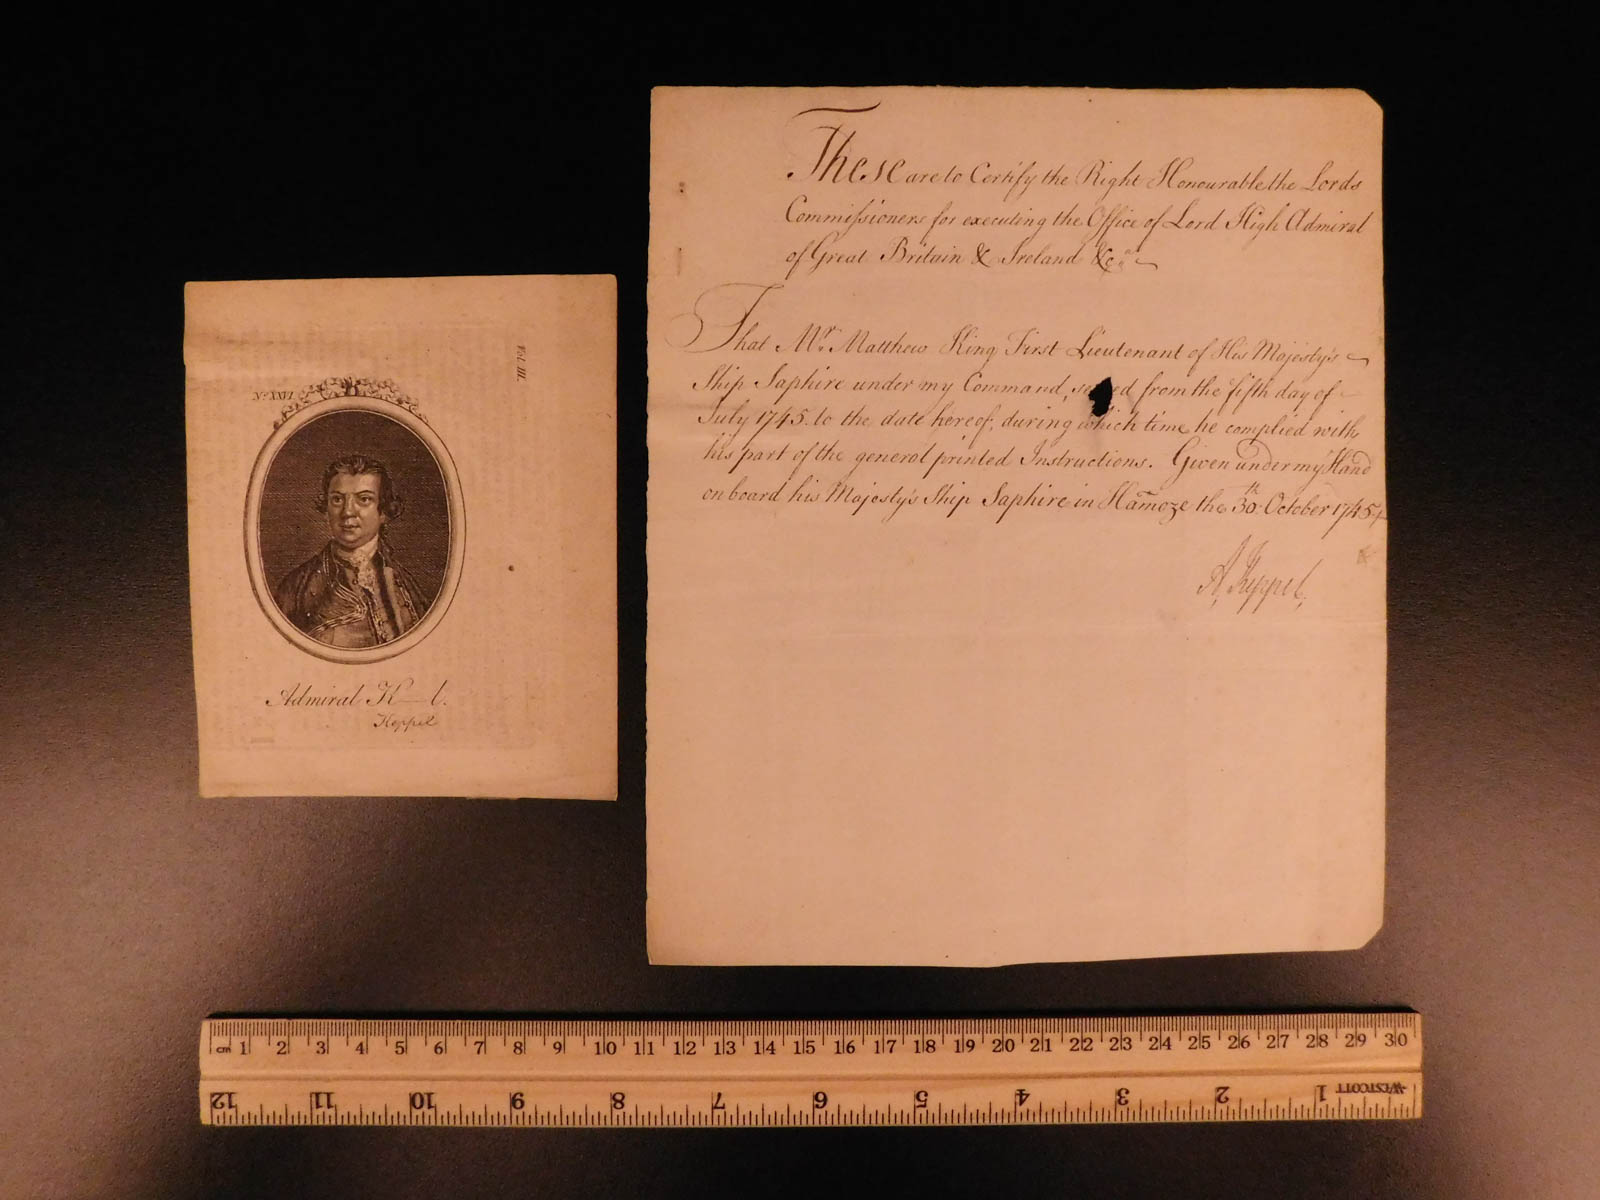 Vol. III.
No. XXVI
Admiral K—l.
Keppel
These are to Certify the Right Honourable the Lords
Commissioners for executing the Office of Lord High Admiral
of Great Britain & Ireland &c.a
That Mr. Matthew King First Lieutenant of His Majesty's
Ship Saphire under my Command, served from the fifth day of
July 1745. to the date hereof, during which time he complied with
his part of the general printed Instructions. Given under my Hand
on board his Majesty's Ship Saphire in Hamoze the 30th October 1745.
A. Keppel.
cm 1 2 3 4 5 6 7 8 9 10 11 12 13 14 15 16 17 18 19 20 21 22 23 24 25 26 27 28 29 30
12 11 10 9 8 7 6 5 4 3 2 1 WESTCOTT